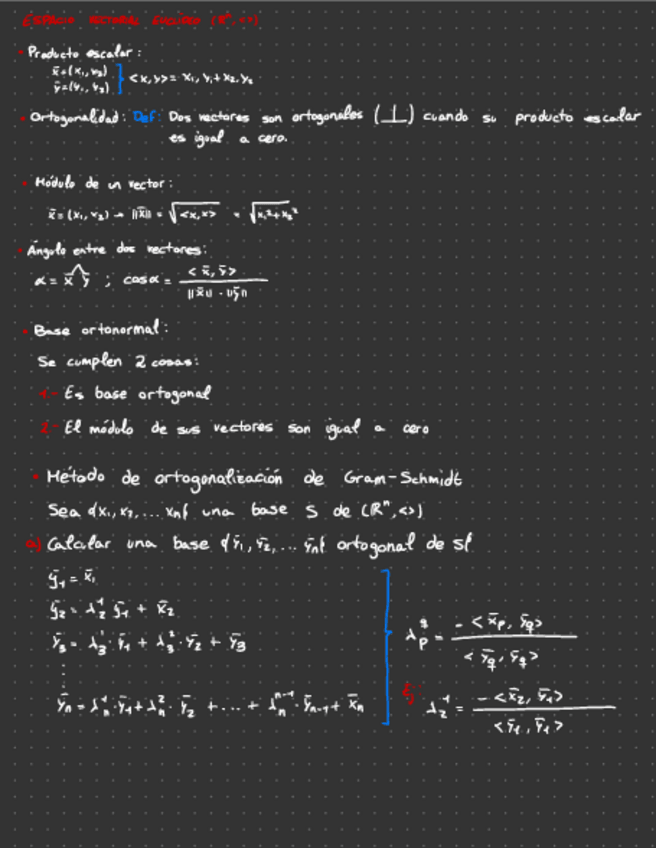 ESPACIO VECTORIAL EUCLIDEO (ℝⁿ, <>)
· Producto escalar:
x̄=(x₁, x₂)
ȳ=(y₁, y₂) } <x,y> = x₁, y₁ + x₂, y₂
· Ortogonalidad: Def: Dos vectores son ortogonales (⊥) cuando su producto escalar
es igual a cero.
· Módulo de un vector:
x̄ = (x₁, x₂) → ||x̄|| = √<x,x> = √x₁²+x₂²
· Ángulo entre dos vectores:
α = x̄^ȳ ; cosα = <x̄, ȳ> / ||x̄|| · ||ȳ||
· Base ortonormal:
Se cumplen 2 cosas:
1- Es base ortogonal
2- El módulo de sus vectores son igual a cero
· Método de ortogonalización de Gram-Schmidt
Sea {x₁, x₂, ... xₙ} una base S de (ℝⁿ, <>)
a) Calcular una base {ȳ₁, ȳ₂, ... ȳₙ} ortogonal de S
ȳ₁ = x̄₁
ȳ₂ = λ₂¹ ȳ₁ + x̄₂
ȳ₃ = λ₃¹ · ȳ₁ + λ₃² · ȳ₂ + ȳ₃
⋮
ȳₙ = λₙ¹ · ȳ₁ + λₙ² · ȳ₂ + ... + λₙⁿ⁻¹ · ȳₙ₋₁ + x̄ₙ
λ_p^q = -<x̄_p, ȳ_q> / <ȳ_q, ȳ_q>
Ej: λ₂¹ = -<x̄₂, ȳ₁> / <ȳ₁, ȳ₁>